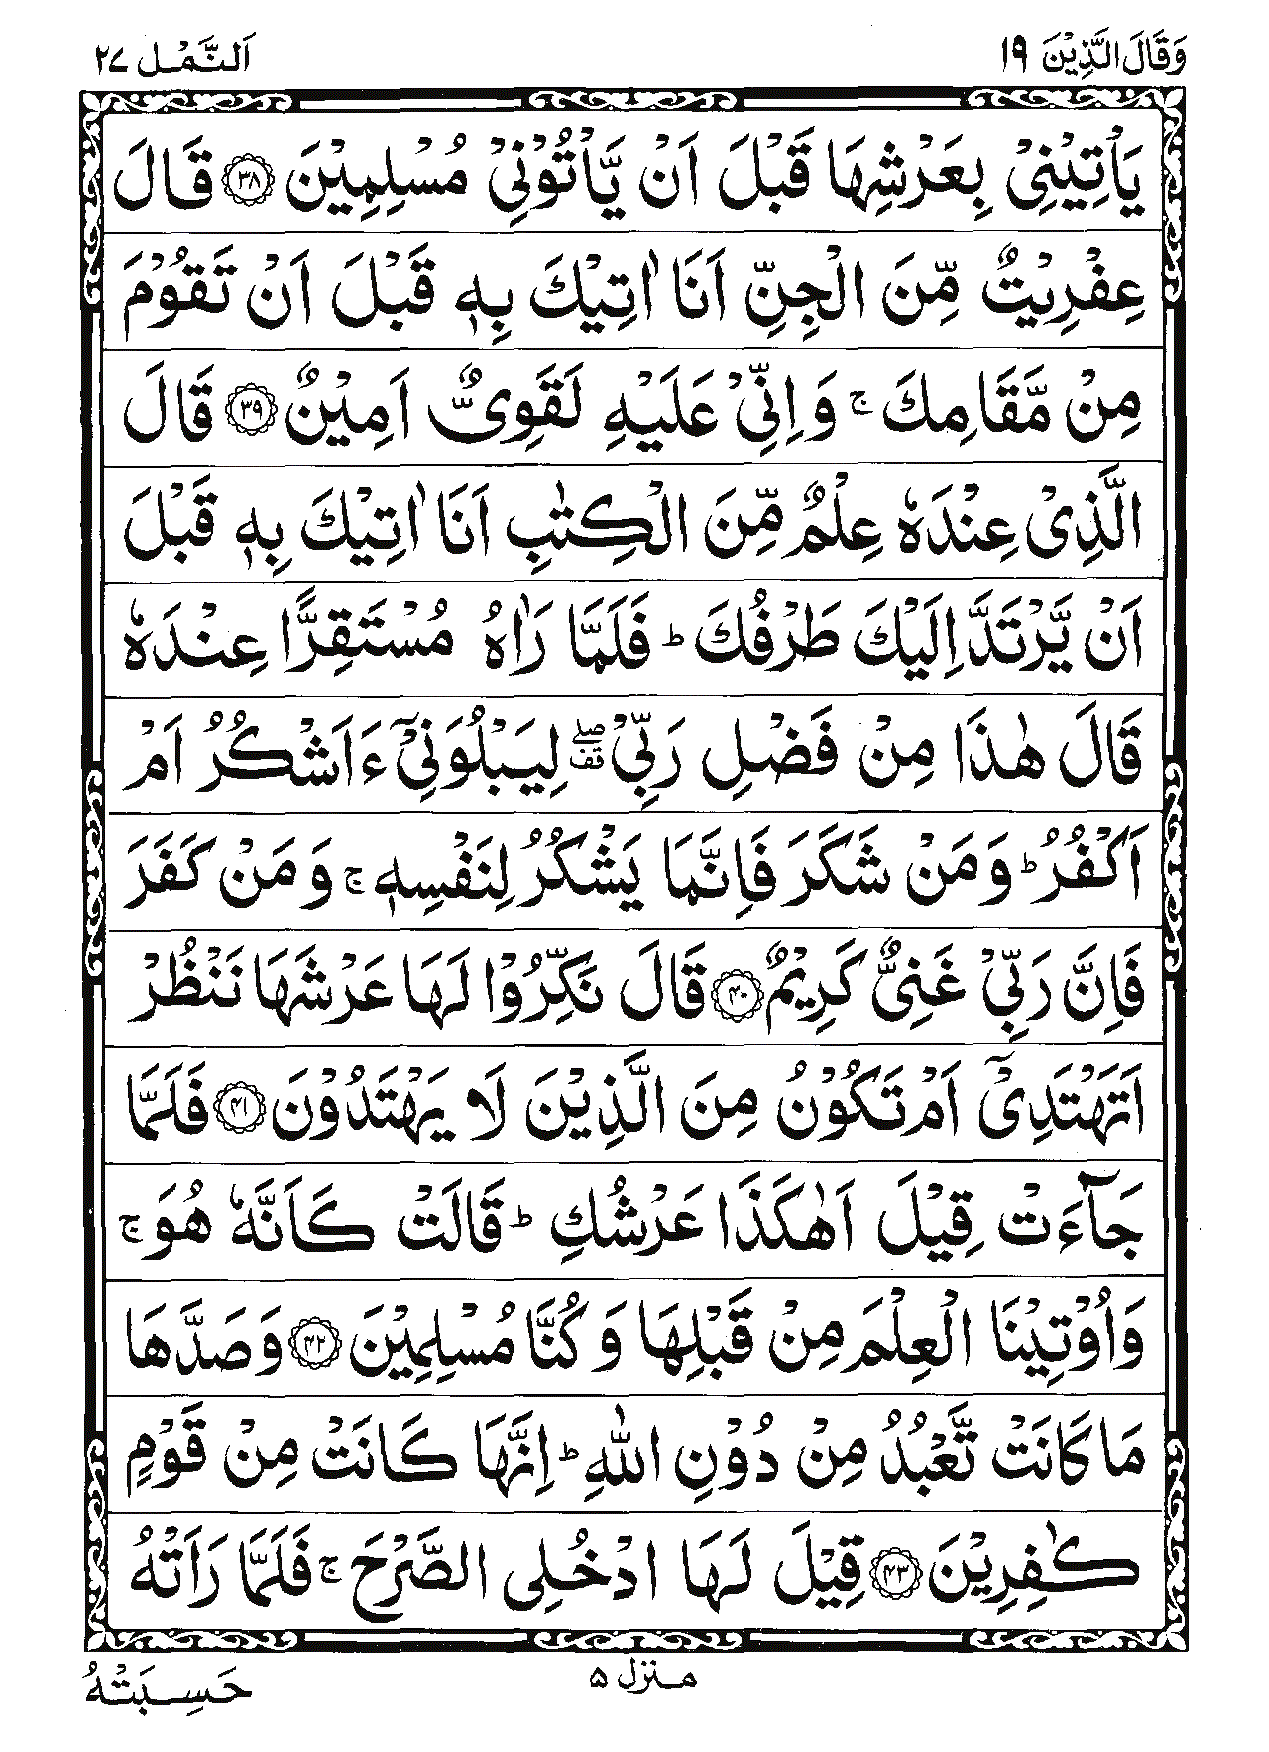 وَقَالَ الَّذِيْنَ ١٩
اَلنَّمْل ٢٧
يَاْتِيْنِيْ بِعَرْشِهَا قَبْلَ اَنْ يَّاْتُوْنِيْ مُسْلِمِيْنَ ﴿٣٨﴾ قَالَ
عِفْرِيْتٌ مِّنَ الْجِنِّ اَنَا اٰتِيْكَ بِهٖ قَبْلَ اَنْ تَقُوْمَ
مِنْ مَّقَامِكَ ۚ وَاِنِّيْ عَلَيْهِ لَقَوِيٌّ اَمِيْنٌ ﴿٣٩﴾ قَالَ
الَّذِيْ عِنْدَهٗ عِلْمٌ مِّنَ الْكِتٰبِ اَنَا اٰتِيْكَ بِهٖ قَبْلَ
اَنْ يَّرْتَدَّ اِلَيْكَ طَرْفُكَ ؕ فَلَمَّا رَاٰهُ مُسْتَقِرًّا عِنْدَهٗ
قَالَ هٰذَا مِنْ فَضْلِ رَبِّيْ ۖ قف لِيَبْلُوَنِيْٓ ءَاَشْكُرُ اَمْ
اَكْفُرُ ؕ وَمَنْ شَكَرَ فَاِنَّمَا يَشْكُرُ لِنَفْسِهٖ ۚ وَمَنْ كَفَرَ
فَاِنَّ رَبِّيْ غَنِيٌّ كَرِيْمٌ ﴿۴۰﴾ قَالَ نَكِّرُوْا لَهَا عَرْشَهَا نَنْظُرْ
اَتَهْتَدِيْٓ اَمْ تَكُوْنُ مِنَ الَّذِيْنَ لَا يَهْتَدُوْنَ ﴿۴۱﴾ فَلَمَّا
جَآءَتْ قِيْلَ اَهٰكَذَا عَرْشُكِ ؕ قَالَتْ كَاَنَّهٗ هُوَ ۚ
وَاُوْتِيْنَا الْعِلْمَ مِنْ قَبْلِهَا وَكُنَّا مُسْلِمِيْنَ ﴿۴۲﴾ وَصَدَّهَا
مَا كَانَتْ تَّعْبُدُ مِنْ دُوْنِ اللّٰهِ ؕ اِنَّهَا كَانَتْ مِنْ قَوْمٍ
كٰفِرِيْنَ ﴿۴۳﴾ قِيْلَ لَهَا ادْخُلِي الصَّرْحَ ۚ فَلَمَّا رَاَتْهُ
منزل ۵
حَسِبَتْهُ